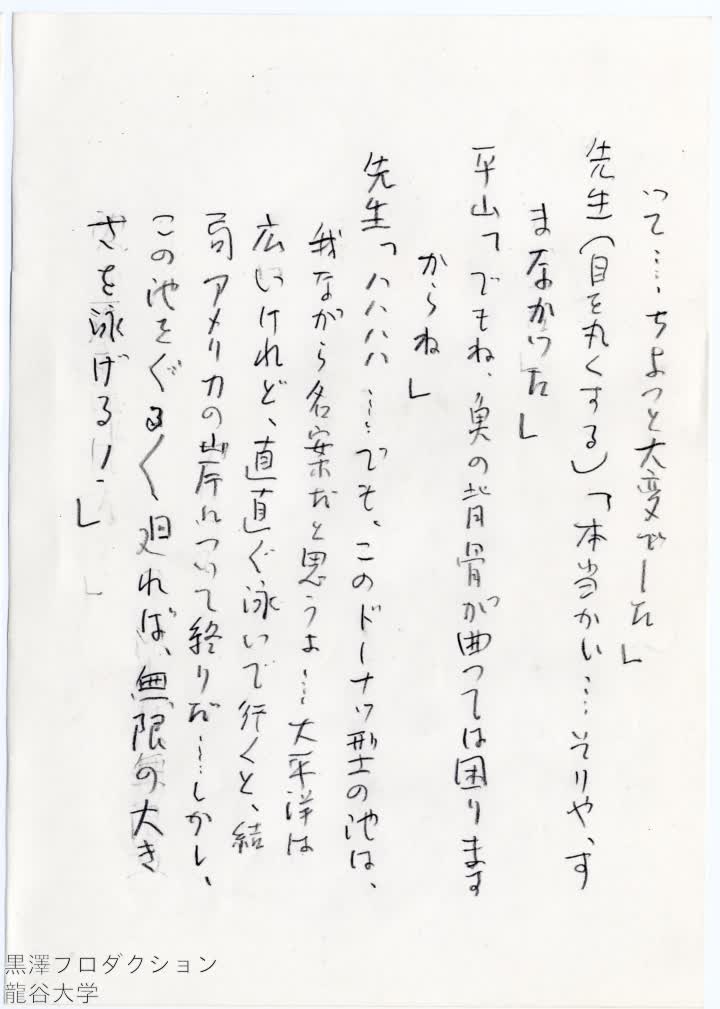 いて……ちょっと大変でした」
先生（目を丸くする）「本当かい……そりゃ、す
まなかった」
平山「でもね、魚の背骨が曲っては困ります
からね」
先生「ハハハハ……でも、このドーナツ型の池は、
我ながら名案だと思うよ……大平洋は
広いけれど、真直ぐ泳いで行くと、結
局アメリカの岸について終りだ……しかし、
この池をぐるぐる廻れば、無限の大き
さを泳げる！」
黒澤プロダクション
龍谷大学